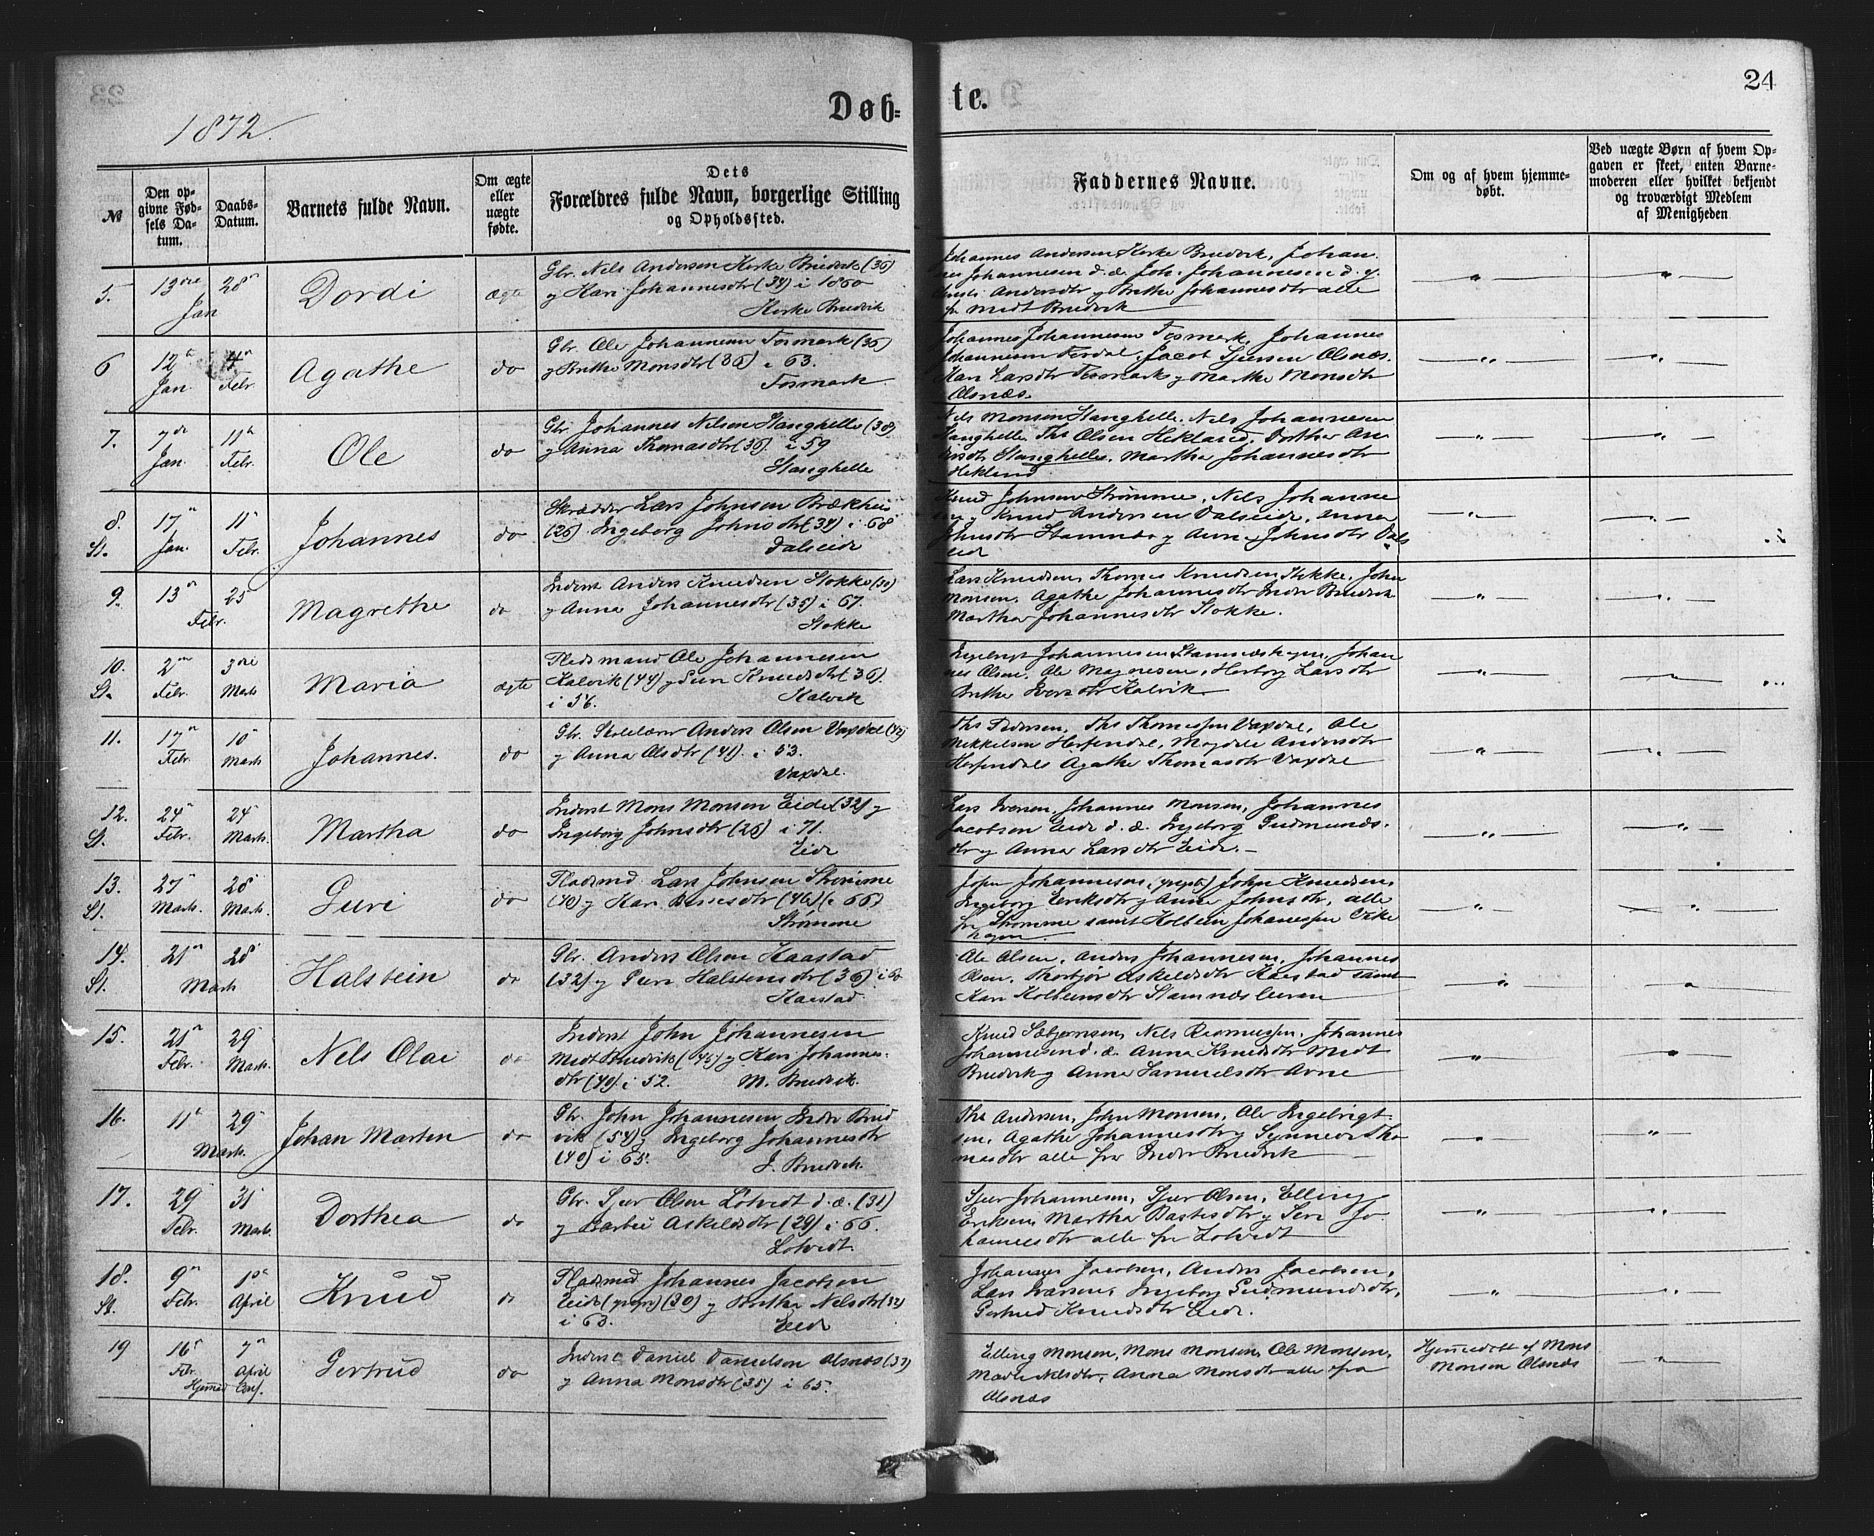 1872.
Døb=
te.
24
№
Den opgivne Fødsels Datum.
Daabs-Datum.
Barnets fulde Navn.
Om ægte eller uægte fødte.
Dets
Forældres fulde Navn, borgerlige Stilling
og Opholdssted.
Faddernes Navne.
Om og af hvem hjemmedøbt.
Ved uægte Børn af hvem Opgaven er skeet, enten Barnemoderen eller hvilket bekjendt og troværdigt Medlem af Menigheden
5. 13 Jan 28 Dordi ægte
Gbr. Nels Andersen Herke Bruvik (36)
og Kari Johannesdtr (34) i 1860
Herke Bruvik
Johannes Andersen Herke Bruvik, Johan
nes Johannesen d. æ. Joh. Johannesen d. y.
Andersdtr og Brithe Johannesdtr alle
fr Midt Bruvik
6 12 Jan 4 Febr. Agathe do
Gbr. Ole Johannesen Fosmark (36)
og Brithe Monsdtr (36) i 63.
Fosmark
Johannes Johannesen Fosmark, Johannes
Johannesen Fordal, Jacob Sjursen Olsnæs.
Kari Larsdtr Fosmark og Marthe Monsdtr
Olsnæs.
7. 7de Jan. 11 Febr. Ole do
Gbr Johannes Nilsen Stanghelle (38)
og Anna Thomasdtr (36) i 59
Stanghelle
Nels Monsen Stanghelle, Nels Johannesen
Stanghelle, Ths Olsen Hekland, Dorthea An
dersdtr Stanghelle, Martha Johannesdtr
Hekland
8 St. 17 Jan. 11 Febr. Johannes do
Skrædder Lars Johnsen Brækhus
(26) Ingeborg Johnsdtr (34) i 68
Dalseide
Knud Johnsen Strømme, Nels Johanne
sen, Knud Andersen Dalseide, Anna
Johnsdtr Stamnæs og Anna Johnsdtr Dals
eide
9. 13 25 Febr. Magrethe do
Inderst Anders Knudsen Stokke
og Anna Johannesdtr (35) i 67.
Stokke
Lars Knudsen, Thomas Knudsen Stokke, John
Monsen, Agathe Johannesdtr Indr Bruvik
Martha Johannesdtr Stokke.
10. St. 2 Febr. 3die Marts Maria ægte
Pladsmand Ole Johannesen
Kalvik (44) og Guri Knudsdtr (36)
i 56. Kalvik
Ingebrigt Johannesen Stamnæshagen, Johan
nes Olsen, Ole Magnesen, Herborg Larsdtr
Brithe Iversdtr Kalvik
11. 17 Febr. 10 Marts Johannes. do
Gbr. Skolelærer Anders Olsen Vaxdal (42)
og Anna Olsdtr (41). i 53.
Vaxdal.
Ths Pedersen, Ths Thomessen Vaxdal, Ole
Mikkelsen Herfendal, Magdele Andersdtr
Herfendal Agathe Thomasdtr Vaxdal
12. St. 24 Febr. 24 Marts. Martha do
Inderst Mons Monsen Eide (32) og
Ingeborg Johnsdtr (26) i 71.
Eide
Lars Iversen, Johannes Monsen, Johannes
Jacobsen Eide d. æ. Ingeborg Gudmunds.
dtr og Anna Larsdtr Eide.
13. St. 27 Marts. 28 Marts. Guri do
Pladsmd. Lars Johnsen Strømme
(40) og Kari (46) i 66
Strømme
Johannesen, John Knudsen,
Ingeborg Eriksdtr og Anna Johnsdtr, alle
fr Strømme samt Holstein Johannessen Eike
hagen.
14. St. 21 28 Marts Halstein do
Gbr. Anders Olsen Kaastad
(32) og Guri Halstensdtr (36) i
Kaastad
Ole Olsen, Anders Johannesen, Johannes
Olsen, Thorbjør Askeldsdtr Kaastad samt
Kari Kolbeinsdtr Stamnæs
15. 21 Febr. 29 Marts. Nels Olai do
Inderst John Johannesen
Midt Bruvik (46) og Kari Johannes.
dtr (40) i 52. M. Bruvik.
Knud Sæbjørnsen, Nels Rasmussen, Johannes
Johannesen d. æ. Anna Knudsdtr Midt
Bruvik og Anna Samuelsdtr Arne
16. 11 29 Marts. Johan Marten do
Gbr. John Johannesen Indr Bru
vik (54) og Ingeborg Johannesdtr
(40) i 65. I. Bruvik.
Ths Andersen, John Monsen, Ole Ingebrigt
sen, Agathe Johannesdtr og Synneve Tho
masdtr alle fra Indr Bruvik
17. 29 Febr. 31 Marts Dorthea do
Gbr. Sjur Olsen Lotvedt d. æ. (31)
og Barbri Askeldsdtr (29) i 66.
Lotvedt.
Sjur Johannesen, Sjur Olsen, Elling
Eriksen, Martha og Siri Jo
hannesdtr alle fr Lotvedt
18. St. 9 Febr. 1ste April Knud do
Pladsmd Johannes Jacobsen
Eide (yngre) (30) og Brithe Nelsdtr (32)
i 63. Eide
Johannes Jacobsen, Anders Jacobsen,
Lars Iversen, Ingeborg Gudmundsdtr,
Gertrud Knudsdtr Eide.
19 16 Febr. 7 April Gertrud do
Hjemmed Conf.
Inderst Daniel Danielsen Olsnæs (37)
og Anna Monsdtr (35) i 65.
Elling Monsen, Mons Monsen, Ole Monsen,
Nelsdtr, Anna Monsdtr alle fra
Olsnæs
Hjemmedøbt af Mons
Monsen Olsnæs